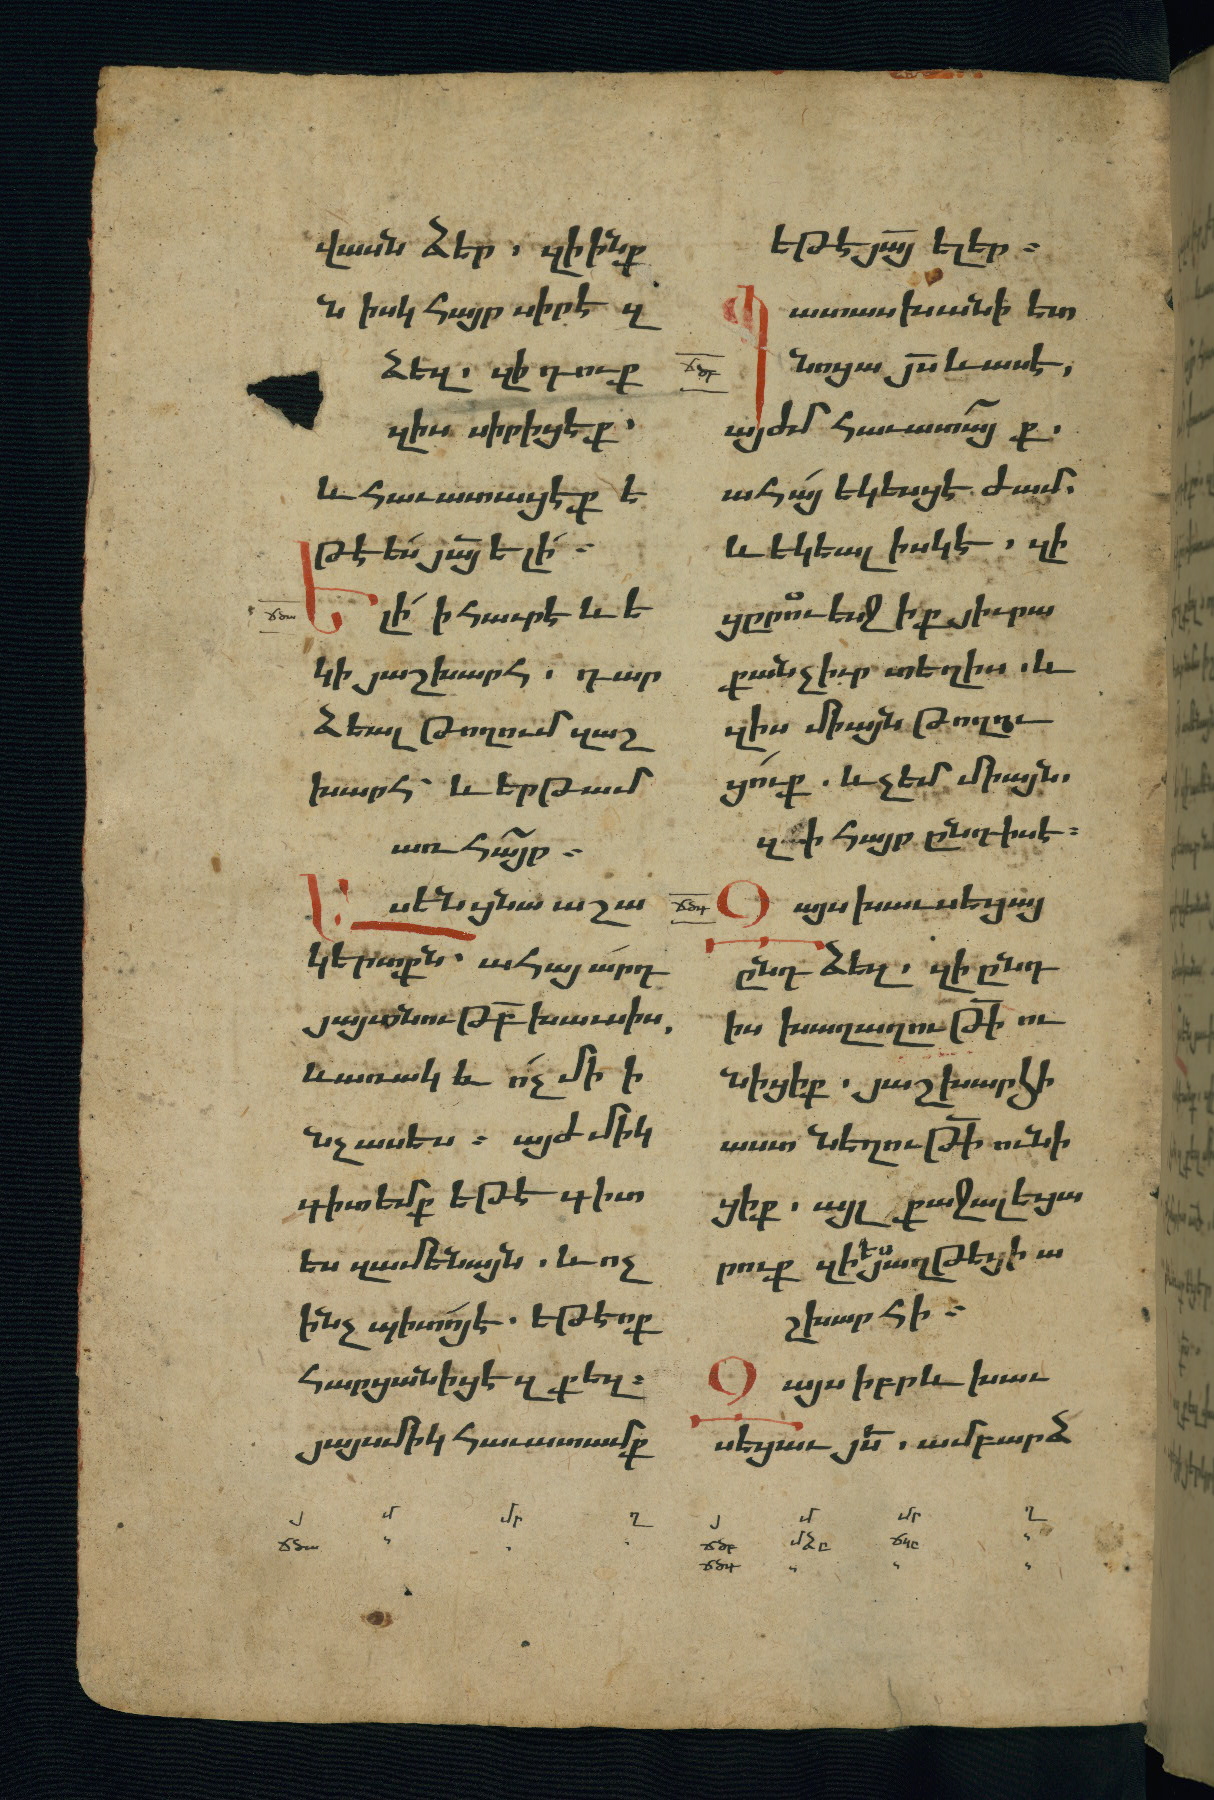 վասն ձեր․ զի ինք
ն իսկ հայր սիրէ զ
ձեզ․ զի դուք
զիս սիրեցէք․
և հաւատացէք ե
թէ ես յայ ելի։
Ելի ի հաւրէ և ե
կի յաշխարհ․ դար
ձեալ թողում զաշ
խարհ՝ և երթամ
առ հայր։
Ասեն ցնա աշա
կերտքն․ ահա յարդ
յայտնութբ խաւսիս,
և առակ և ոչ մի ի
նչ ասես։ այժմիկ
գիտեմք եթէ գիտ
ես զամենայն․ և ոչ
ինչ պիտոյ է․ եթե ոք
հարցանիցէ զքեզ։
յայսմիկ հաւատամք
եթէ յայ ելեր։
Պատասխանի ետ
նոցա յս և ասէ,
այժմ հաւատայք․
ահայ եկեսցէ ժամ․
և եկեալ իսկ է․ զի
ցրուեսջիք յիւրա
քանչիւր տեղիս․ և
զիս միայն թողու
ցուք․ և չեմ միայն․
զի հայր ընդ իս է։
Զայս խաւսեցայ
ընդ ձեզ․ զի ընդ
իս խաղաղութի ու
նիցիք․ յաշխարհի
աստ նեղութի ունի
ցիք․ այլ քաջալերեցա
րուք զի ես յաղթեցի ա
շխարհի։
Զայս իբրև խաւ
սեցաւ յս․ ամբարձ
ճծա
ճծբ
ճծգ
յ մ մր ղ
ճծա
յ մ մր ղ
ճծբ
ճծգ